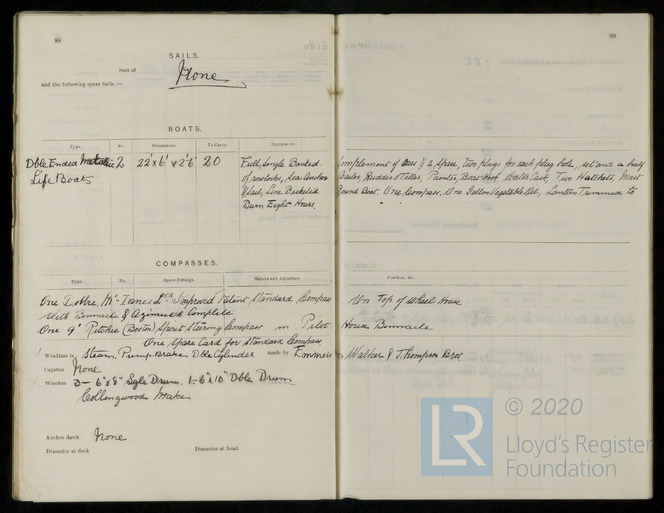 88
SAILS.
Suit of
None
and the following spare Sails:—
BOATS.
Type. No. Dimensions. To Carry. Equipment.
Dble Ended Metallic 2 22'x6'x2'6" 20 Full, Single Banked
Life Boats
of rowlocks, Sea Anchor
Mast, Line Becketed
Burn Eight Hours.
COMPASSES.
Type. No. Spare Fittings. Makers and Adjusters.
One Dobbie, McInnes Ltd Improved Patent Standard Compass
With Binnacle & Azimuth Complete
One 9" Ritchie (Boston) Spirit Steering Compass in Pilot
One Spare Card for Standard Compass
Windlass is Steam Pump Brake. Dble Cylinder made by Emmerson
Capstan None
Winches 3 – 6"x8" Sgle Drum. 1 – 6"x10" Dble Drum
Collingwood Make
Anchor davit None
Diameter at deck Diameter at head
90
Complement of Oars & 2 Spare, Two plugs for each plug hole, set and a half
Bailer, Rudder & Tiller Painter, Boat Hook, Water Cask, Two Hatchets, Mast
Round Boat. One Compass, One Gallon Vegetable Oil, Lantern Trimmed to
Position, &c.
On Top of Wheel House
House Binnacle
Walker & Thompson Bros.
© 2020
LR
Lloyd's Register
Foundation